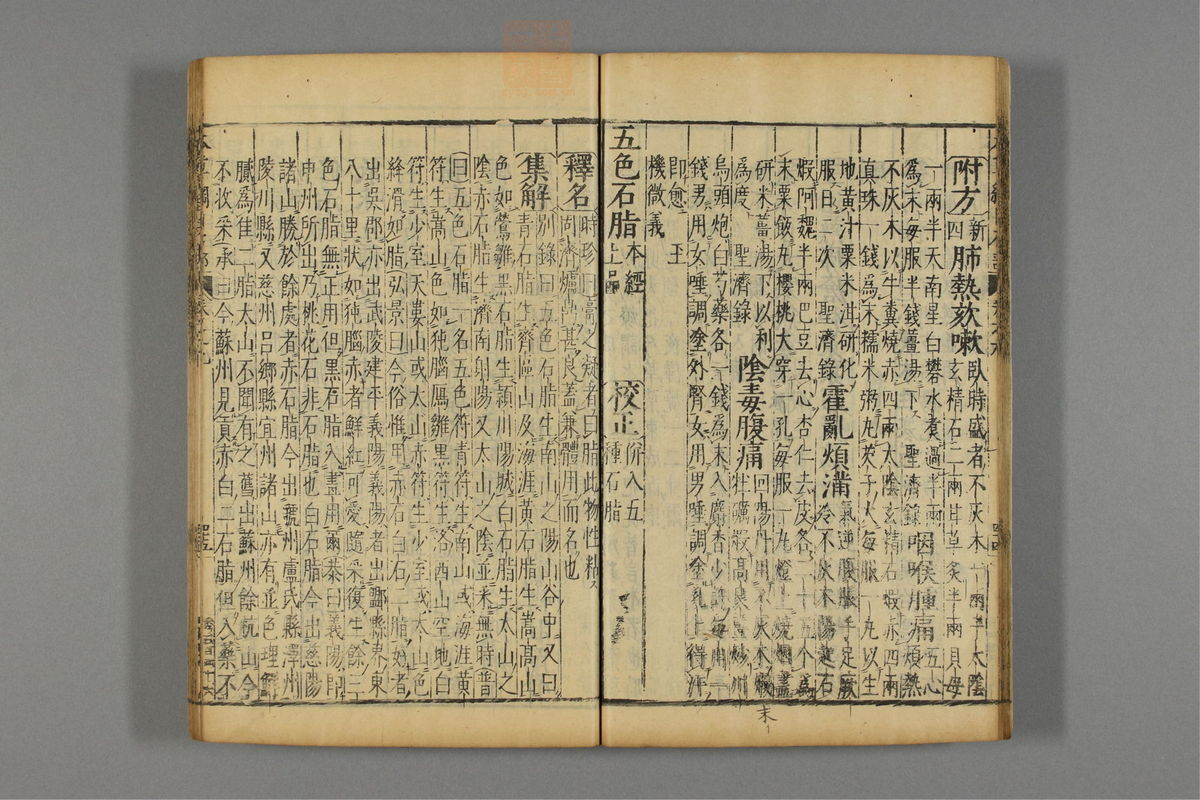 附方 新四 肺熱欬嗽 臥時盛者不灰木一兩半太陰
玄精石二兩甘草炙半兩貝母一兩半天南星白礬水煮過半兩
為末每服半錢薑湯下 聖濟錄 咽喉腫痛 五心煩熱
不灰木以牛糞燒赤四兩太陰玄精石煅赤四兩
真珠一錢為末糯米粥丸芡子大每服一丸以生
地黃汁粟米泔研化服日二次 聖濟錄 霍亂煩滿 氣逆腹脹手足厥冷不灰木陽起石
煅阿魏半兩巴豆去心杏仁去皮各二十五個為
末粟飯丸櫻桃大穿一孔每服一丸燈上燒烟盡
研米薑湯下以利為度 聖濟錄 陰毒腹痛 回陽丹用不灰木煅
烏頭炮白芍藥各一錢為末入麝香少許每用一
錢男用女唾調塗外腎女用男唾調塗乳上得汗
即愈 王
機微義
五色石脂 本經上品 校正 併入五種石脂
釋名 時珍曰膏之凝者曰脂此物性粘
固濟爐鼎甚良蓋兼體用而名也
集解 別錄曰五色石脂生南山之陽山谷中又曰
青石脂生齊區山及海涯黃石脂生嵩高山
色如鶯雛黑石脂生潁川陽城白石脂生太山之
陰赤石脂生濟南射陽又太山之陰並采無時普
曰五色石脂一名五色符青符生南山或海涯黃
符生嵩山色如㹠腦鴈雛黑符生洛西山空地白
符生少室天婁山或太山赤符生少室或太山色
絳滑如脂弘景曰今俗惟用赤石白石二脂好者
出吳郡亦出武陵建平義陽義陽者出鄳縣界東
八十里狀如㹠腦赤者鮮紅可愛隨采復生餘三
色石脂無正用但黑石脂入畫用爾恭曰義陽即
申州所出乃桃花石非石脂也白石脂今出慈陽
諸山勝於餘處者赤石脂今出虢州盧氏縣澤州
陵川縣又慈州呂鄉縣宜州諸山亦有並色理鮮
膩為佳二脂太山不聞有之舊出蘇州餘杭山今
不收采承曰今蘇州見貢赤白二石脂但入藥不
末